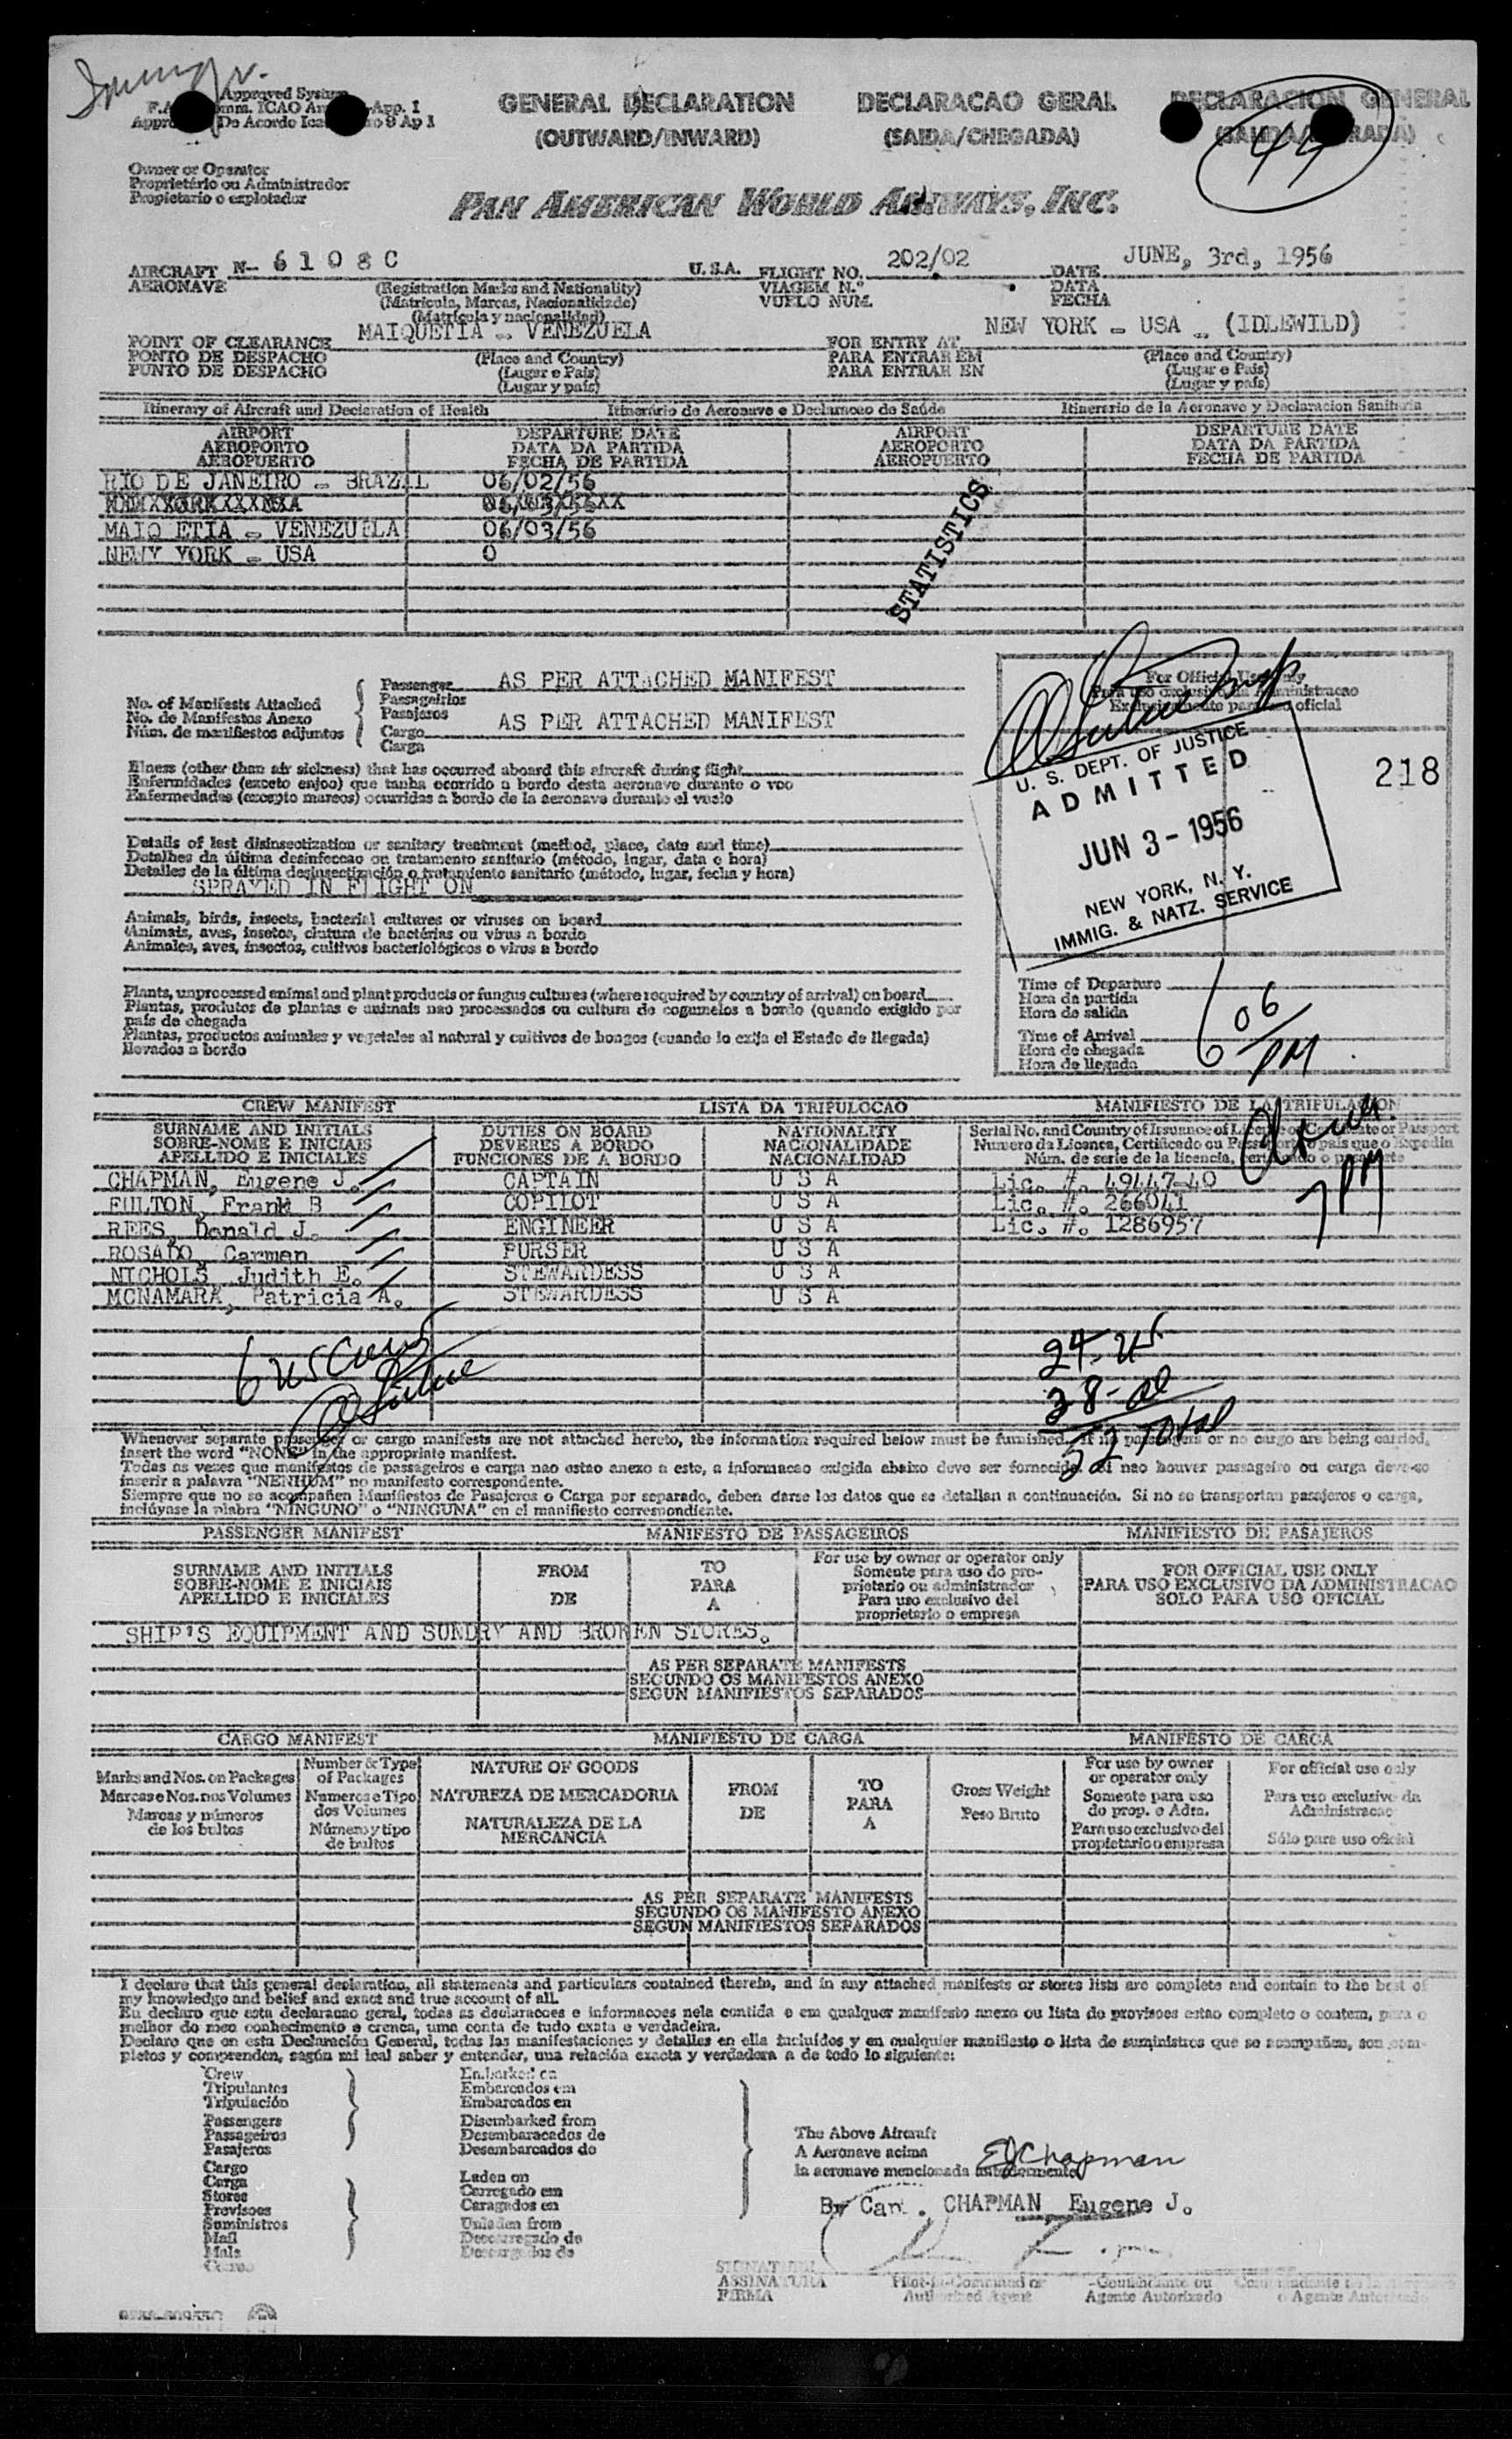 Approved System
App. 1
De Acordo
9 Ap 1
GENERAL DECLARATION
(OUTWARD/INWARD)
DECLARACAO GERAL
(SAIDA/CHEGADA)
DECLARACION GENERAL
44
Owner or Operator
Proprietário ou Administrador
Propietario o explotador
PAN AMERICAN WORLD AIRWAYS, INC.
AIRCRAFT N- 6108C U.S.A. FLIGHT NO. 202/02 DATE JUNE, 3rd, 1956
AERONAVE (Registration Marks and Nationality) VIAGEM N.º DATA
(Matricula, Marcas, Nacionalidade) VUELO NUM. FECHA
(Matricola y nacionalidad)
POINT OF CLEARANCE MAIQUETIA - VENEZUELA FOR ENTRY AT NEW YORK - USA - (IDLEWILD)
PONTO DE DESPACHO (Place and Country) PARA ENTRAR EM (Place and Country)
PUNTO DE DESPACHO (Lugar e Pais) PARA ENTRAR EN (Lugar e Pais)
(Lugar y país) (Lugar y país)
Itinerary of Aircraft and Declaration of Health Itinerário de Aeronave e Declaracao de Saúde Itinerario de la Aeronave y Declaracion Sanitaria
AIRPORT DEPARTURE DATE AIRPORT DEPARTURE DATE
AEROPORTO DATA DA PARTIDA AEROPORTO DATA DA PARTIDA
AEROPUERTO FECHA DE PARTIDA AEROPUERTO FECHA DE PARTIDA
RIO DE JANEIRO - BRAZIL 06/02/56
MAIQ ETIA - VENEZUELA 06/03/56
NEWY YORK - USA 0
STATISTICS
No. of Manifests Attached
No. de Manifestos Anexo
Núm. de manifiestos adjuntos
Passenger AS PER ATTACHED MANIFEST
Passageirios
Pasajeros
Cargo AS PER ATTACHED MANIFEST
Carga
For Official Use Only
218
U. S. DEPT. OF JUSTICE
ADMITTED
JUN 3 - 1956
NEW YORK, N. Y.
IMMIG. & NATZ. SERVICE
Illness (other than air sickness) that has occurred aboard this aircraft during flight
Enfermidades (exceto enjoo) que tanha ocorrido a bordo desta aeronave durante o voo
Enfermedades (excepto mareos) ocurridas a bordo de la aeronave durante el vuelo
Details of last disinsectization or sanitary treatment (method, place, date and time)
Detalhes da última desinfeccao ou tratamento sanitario (método, lugar, data e hora)
Detalles de la última desinsectización o tratamiento sanitario (método, lugar, fecha y hora)
SPRAYED IN FLIGHT ON
Animals, birds, insects, bacterial cultures or viruses on board
Animais, aves, insetos, clutura de bactérias ou vírus a bordo
Animales, aves, insectos, cultivos bacteriológicos o virus a bordo
Plants, unprocessed animal and plant products or fungus cultures (where required by country of arrival) on board
Plantas, produtos de plantas e animais nao processados ou cultura de cogumelos a bordo (quando exigido por
país de chegada
Plantas, productos animales y vegetales al natural y cultivos de hongos (cuando lo exija el Estado de llegada)
llevados a bordo
Time of Departure
Hora da partida
Hora de salida
Time of Arrival 6 06 PM
Hora de chegada
Hora de llegada
CREW MANIFEST LISTA DA TRIPULOCAO MANIFIESTO DE LA TRIPULACION
SURNAME AND INITIALS DUTIES ON BOARD NATIONALITY
SOBRE-NOME E INICIAIS DEVERES A BORDO NACIONALIDADE
APELLIDO E INICIALES FUNCIONES DE A BORDO NACIONALIDAD
7 PM
CHAPMAN, Eugene J. CAPTAIN U S A Lic. #. 49447-40
FULTON, Frank B COPILOT U S A Lic. #. 266041
REES, Donald J. ENGINEER U S A Lic. #. 1286957
ROSADO, Carmen PURSER U S A
NICHOLS, Judith E. STEWARDESS U S A
MCNAMARA, Patricia A. STEWARDESS U S A
24-
28-
52 Total
Whenever separate passenger or cargo manifests are not attached hereto, the information required below must be furnished. If no passengers or no cargo are being carried,
insert the word "NONE" in the appropriate manifest.
Todas as vezes que manifestos de passageiros e carga nao estao anexo a este, a informacao exigida abaixo deve ser fornecida. Si nao houver passageiro ou carga deve-se
inserir a palavra "NENHUM" no manifesto correspondente.
Siempre que no se acompañen Manifiestos de Pasajeros o Carga por separado, deben darse los datos que se detallan a continuación. Si no se transportan pasajeros o carga,
inclúyase la plabra "NINGUNO" o "NINGUNA" en el manifiesto correspondiente.
PASSENGER MANIFEST MANIFESTO DE PASSAGEIROS MANIFIESTO DE PASAJEROS
SURNAME AND INITIALS FROM TO For use by owner or operator only FOR OFFICIAL USE ONLY
SOBRE-NOME E INICIAIS Somente para uso do pro- PARA USO EXCLUSIVO DA ADMINISTRACAO
APELLIDO E INICIALES DE PARA prietario ou administrador SOLO PARA USO OFICIAL
A Para uso exclusivo del
proprietario o empresa
SHIP'S EQUIPMENT AND SUNDRY AND BROKEN STORES.
AS PER SEPARATE MANIFESTS
SEGUNDO OS MANIFESTOS ANEXO
SEGUN MANIFIESTOS SEPARADOS
CARGO MANIFEST MANIFIESTO DE CARGA MANIFESTO DE CARGA
Marks and Nos. on Packages Number & Type of Packages NATURE OF GOODS FROM TO Gross Weight For use by owner or operator only For official use only
Marcas e Nos. nos Volumes Numeros e Tipo dos Volumes NATUREZA DE MERCADORIA DE PARA Peso Bruto Somente para uso do prop. e Adm. Para uso exclusivo da Administracao
Marcas y números de los bultos Número y tipo de bultos NATURALEZA DE LA MERCANCIA A Para uso exclusivo del propietario o empresa Sólo para uso oficial
AS PER SEPARATE MANIFESTS
SEGUNDO OS MANIFESTO ANEXO
SEGUN MANIFIESTOS SEPARADOS
I declare that this general declaration, all statements and particulars contained therein, and in any attached manifests or stores lists are complete and contain to the best of
my knowledge and belief and exact and true account of all.
Eu declaro que esta declaracao geral, todas as declaracoes e informacoes nela contida e em qualquer manifesto anexo ou lista de provisoes estao completo e contem, para o
melhor do meu conhecimento e crenca, uma conta de tudo exata e verdadeira.
Declaro que en esta Declaración General, todas las manifestaciones y detalles en ella incluídos y en cualquier manifiesto o lista de suministros que se acompañen, son com-
pletos y comprenden, según mi leal saber y entender, una relación exacta y verdadera a de todo lo siguiente:
Crew Embarked on
Tripulantes Embarcados em
Tripulación Embarcados en
Passengers Disembarked from
Passageiros Desembaracados de
Pasajeros Desembarcados do
Cargo
Carga Laden on
Stores Carregado em
Provisoes Caragados en
Suministros Unladen from
Mail Descarregado de
Mala Descargados de
The Above Aircraft
A Aeronave acima
la aeronave mencionada anteriormente
EJChapman
By Cap. CHAPMAN, Eugene J.
SIGNATURE
ASSINATURA Pilot-in-Command or Comandante ou
FIRMA Authorized Agent Agente Autorizado o Agente